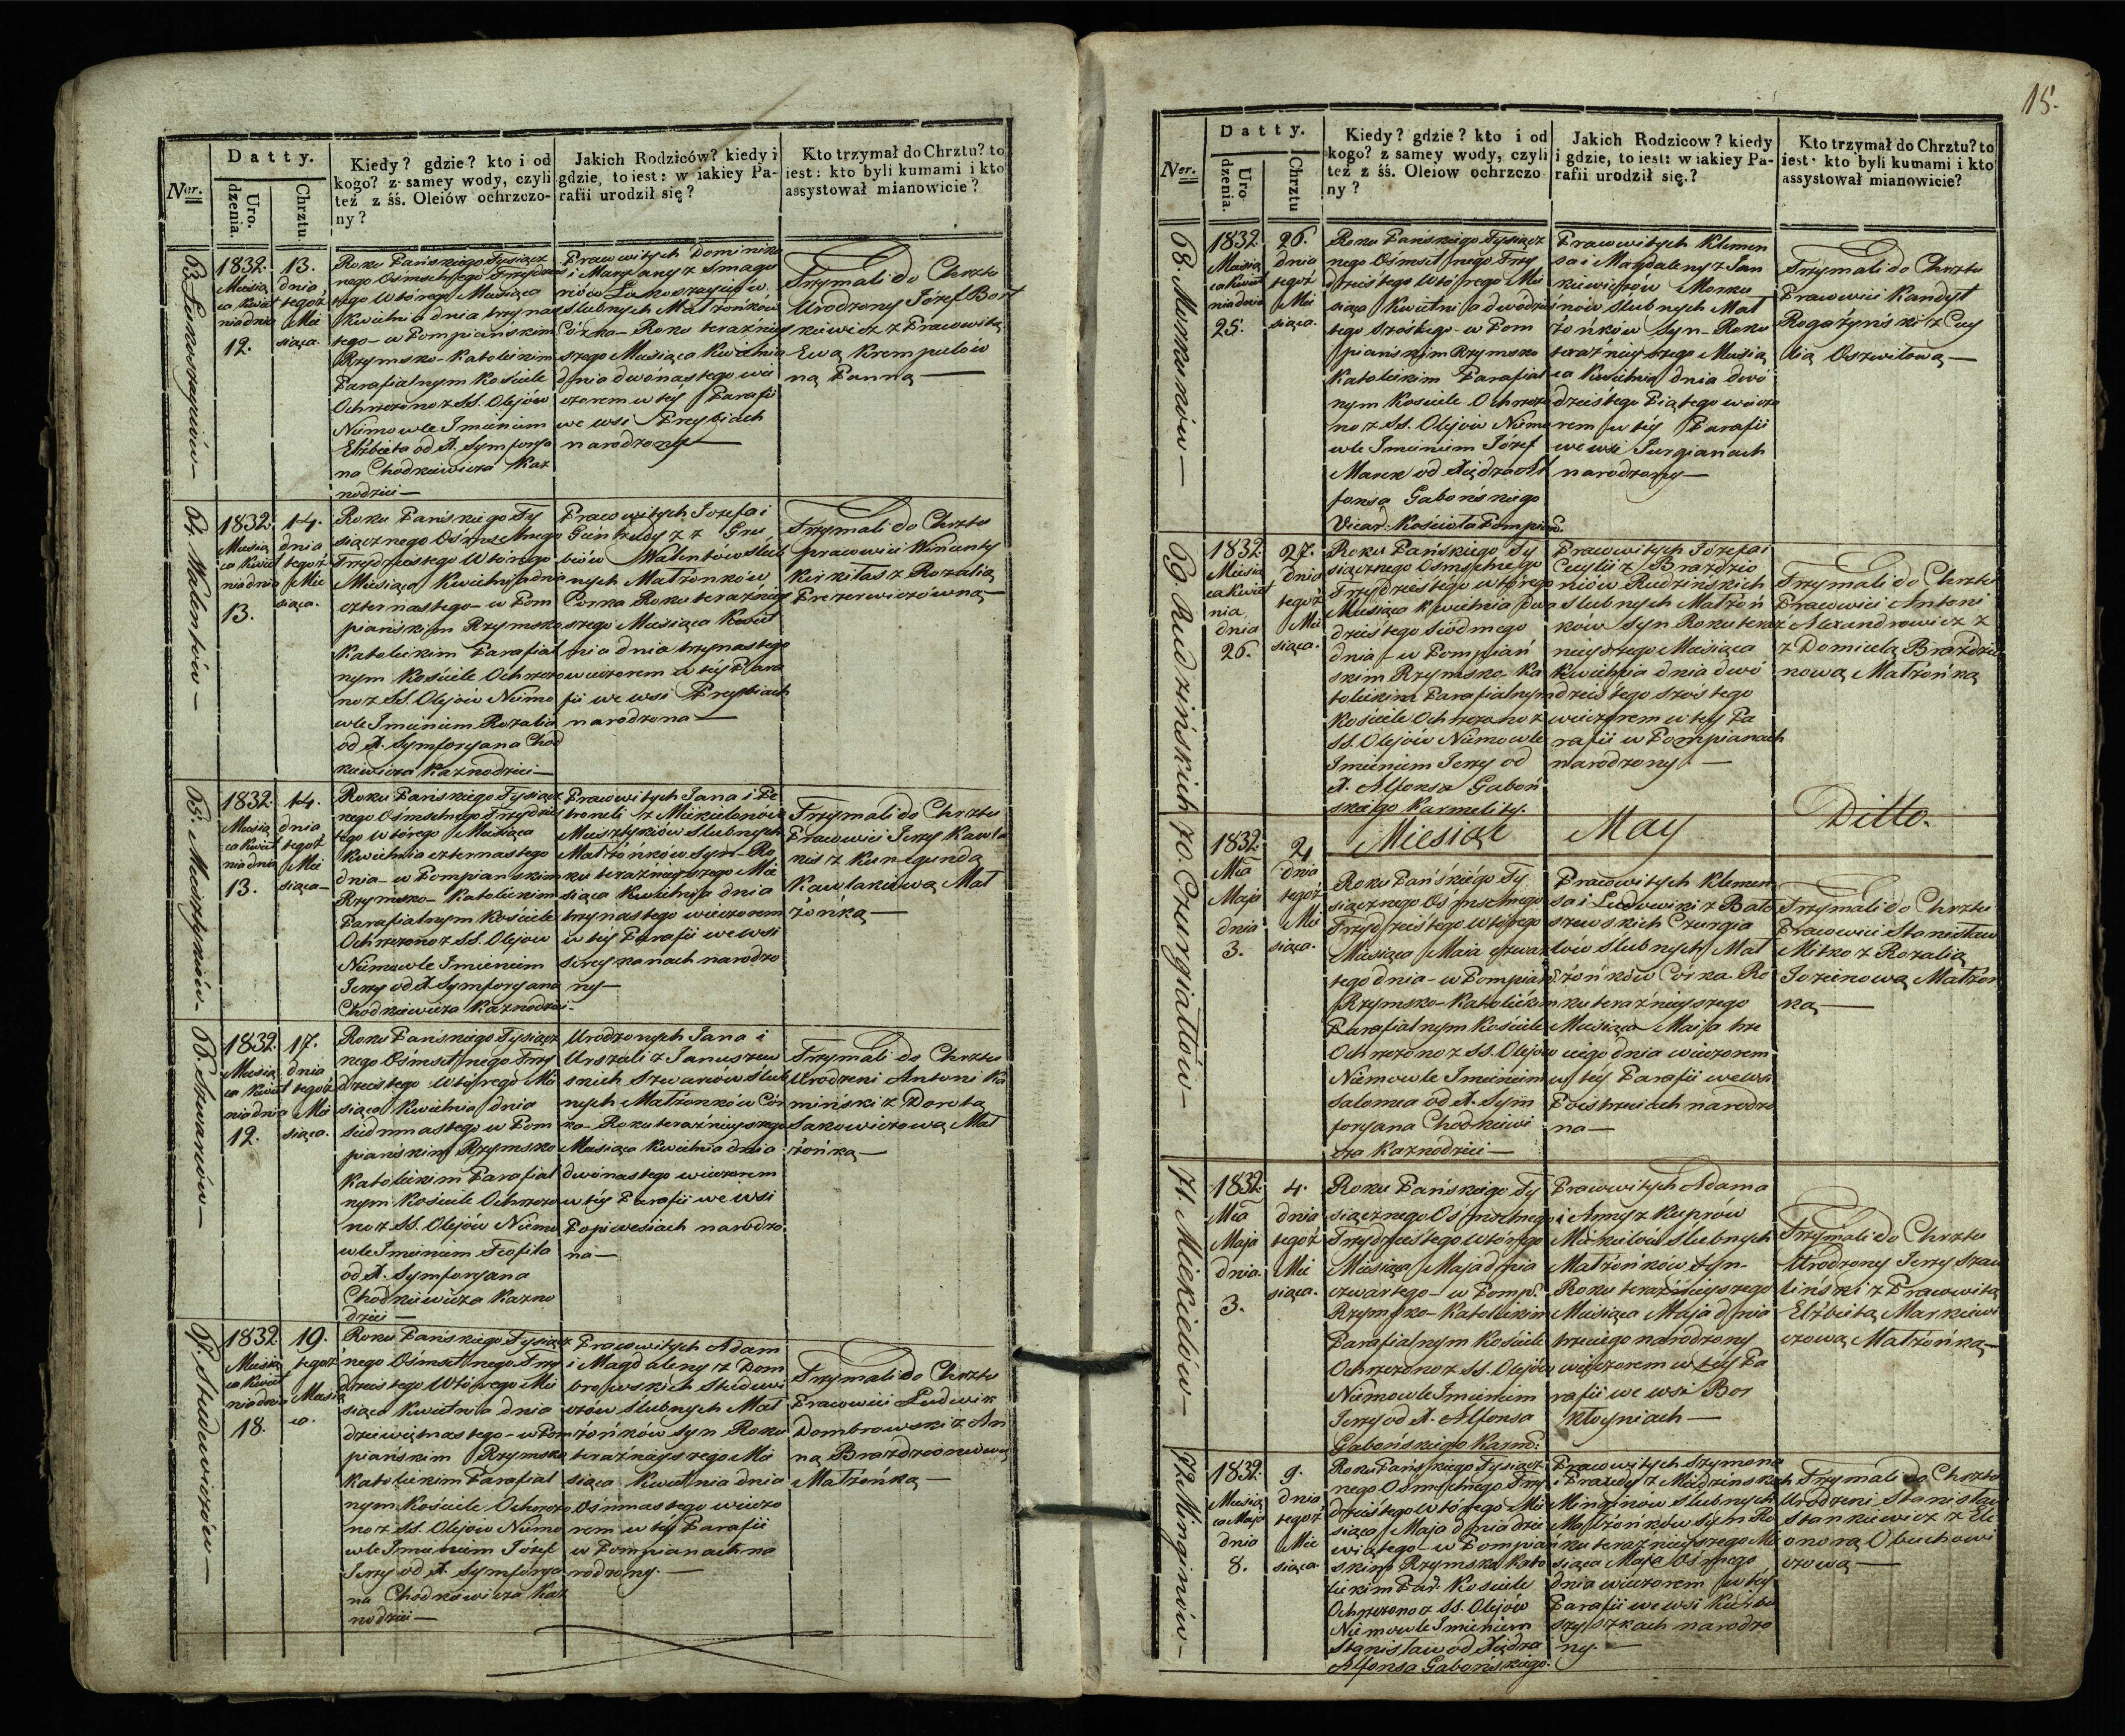 15.
Datty.
Ner.
Uro.
dzenia.
Chrztu.
Kiedy? gdzie? kto i od
kogo? z samey wody, czyli
też z śś. Oleiów ochrzczo-
ny?
Jakich Rodziców? kiedy i
gdzie, to iest: w iakiey Pa-
rafii urodził się?
Kto trzymał do Chrztu? to
iest: kto byli kumami i kto
assystował mianowicie?
63.
1832.
Miesią
ca Kwiet
nia dnia
12.
13.
dnia
tegoż
Mie
siąca.
Roku Pańskiego Tysiącz
nego Ośmsetnego Trzydzies
tego Wtórego Miesiąca
Kwietnia dnia trzynas
tego - w Pompiańskim
Rzymsko-Katolickim
Parafialnym Kościele
Ochrzczono z SS. Olejów
Niemowle Imieniem
Elżbieta od X. Symforya
na Chodkiewicza Kaz
nodziei —
Prawowitych Dominika
i Maryanny z
Slubnych Małżonków
Córka - Roku teraźniey
szego Miesiąca Kwietnia
dnia dwónastego wie
czorem w téy Parafii
we wsi
narodzona —
Trzymali do Chrztu
Urodzony Józef Bort
kiewicz z Prawowitą
Ewą Krempulów
ną Panną —
64. Walentów —
1832.
Miesią
ca Kwiet
nia dnia
13.
14.
dnia
tegoż
Mie
siąca.
Roku Pańskiego Ty
siącznego Ośmsetnego
Trzydziestego Wtórego
Miesiąca Kwietnia dnia
czternastego - w Pom
piańskim Rzymsko
Katolickim Parafial
nym Kościele Ochrzczo
no z SS. Olejów Niemo
wle Imieniem Rozalia
od X. Symforyana Chod
kiewicza Kaznodziei —
Prawowitych Jozefa i
Walentów Slub
nych Małżonków
Corka Roku teraźniey
szego Miesiąca Kwiet
nia dnia trzynastego
wieczorem w téy Para
fii we wsi
narodzona —
Trzymali do Chrztu
prawowici Wincenty
z Rozalią
65.
1832.
Miesią
ca Kwiet
nia dnia
13.
14.
dnia
tegoż
Mie
siąca —
Roku Pańskiego Tysiącz
nego Ośmsetnego Trzydzies
tego Wtórego Miesiąca
Kwietnia czternastego
dnia - w Pompianskim
Rzymsko-Katolickim
Parafialnym Kościele
Ochrzczono z SS. Olejow
Niemowle Imieniem
Jerzy od X. Symforyana
Chodkiewicza Kaznodziei -
Prawowitych Jana i Pe
troneli z
Slubnych
Małżonków Syn - Ro
ku teraźniejszego Mie
siąca Kwietnia dnia
trzynastego wieczorem
w téy Parafii we wsi
narodzo
ny —
Trzymali do Chrztu
Prawowici Jerzy
z Kunegundą
Mał
żonką —
66. Szwarców —
1832.
Miesią
ca Kwiet
nia dnia
12.
17.
dnia
tegoż
Mie
siąca.
Roku Pańskiego Tysiącz
nego Ośmsetnego Trzy
dziestego Wtórego Mie
siąca Kwietnia dnia
siedmnastego w Pom
piańskim Rzymsko
Katolickim Parafial
nym Kościele Ochrzczo
no z SS. Olejów Niemo
wle Imieniem Teofila
od X. Symforyana
Chodkiewicza Kazno
dziei —
Urodzonych Jana i
Urszuli z Januszew
skich Szwarców Slub
nych Małżonków Cór
ka - Roku teraźniejszego
Miesiąca Kwietnia dnia
dwónastego wieczorem
w téy Parafii we wsi
Popiwesiach narodzo
na —
Trzymali do Chrztu
Urodzeni Antoni Ka
miński z Dorotą
Sakowiczową Mał
żonką —
67. Studewiczów —
1832.
Miesią
ca Kwiet
nia dnia
18.
19.
tegoż
Miesią
ca.
Roku Pańskiego Tysiącz
nego Ośmsetnego Trzy
dziestego Wtórego Mie
siąca Kwietnia dnia
dziewiętnastego - w Pom
piańskim Rzymsko
Katolickim Parafial
nym Kościele Ochrzczo
no z SS. Olejów Niemo
wle Imieniem Józef
Jerzy od X. Symforya
na Chodkiewicza Kaz
nodziei —
Prawowitych Adam
i Magdaleny z Dom
browskich Studewi
czów Slubnych Mał
żonków Syn Roku
teraźniejszego Mie
siąca Kwietnia dnia
Ośmnastego wieczo
rem w téy Parafii
w Pompianach na
rodzony. —
Trzymali do Chrztu
Prawowici Ludwik
Dombrowski z An
ną
Małżonką —
Datty.
Ner.
Uro
dzenia.
Chrztu
Kiedy? gdzie? kto i od
kogo? z samey wody, czyli
też z śś. Oleiow ochrzczo
ny?
Jakich Rodzicow? kiedy
i gdzie, to iest: w iakiey Pa-
rafii urodził się.?
Kto trzymał do Chrztu? to
iest: kto byli kumami i kto
assystował mianowicie?
68. Morkunów —
1832.
Miesią
ca Kwiet
nia dnia
25.
26.
dnia
tegoż
Mie
siąca.
Roku Pańskiego Tysiącz
nego Ośmsetnego Trzy
dziestego Wtórego Mie
siąca Kwietnia dwódzies
tego szóstego - w Pom
piańskim Rzymsko
Katolickim Parafial
nym Kościele Ochrzczo
no z SS. Olejów Niemo
wle Imieniem Józef
Marek od Xiędza Al
fonsa Gabońskiego
Vicar: Kościoła Pompiań:
Prawowitych Klemen
sa i Magdaleny z Jan
kiewiczów Morku
nów Slubnych Mał
żonków Syn - Roku
teraźniejszego Miesią
ca Kwietnia dnia dwó
dziestego Piątego wieczo
rem w téy Parafii
we wsi Jurgianach
narodzony —
Trzymali do Chrztu
Prawowici Kandyt
Rogażyński z Cecy
lią Oszwilową —
69. Rudzińskich
1832.
Miesią
ca Kwiet
nia
dnia
26.
27.
dnia
tegoż
Mie
siąca.
Roku Pańskiego Ty
siącznego Ośmsetnego
Trzydziestego wtórego
Miesiąca Kwietnia dwa
dziestego siódmego
dnia - w Pompiań
skim Rzymsko-Ka
tolickim Parafialnym
Kościele Ochrzczono z
SS. Olejów Niemowle
Imieniem Jerzy od
X. Alfonsa Gaboń
skiego Karmelity.
Prawowitych Józefa i
Cecylii z Brazdzio
niów Rudzińskich
Slubnych Małżon
ków Syn Roku teraz
niejszego Miesiąca
Kwietnia dnia dwó
dziestego szóstego
wieczorem w téy Pa
rafii w Pompianach
narodzony. —
Trzymali do Chrztu
Prawowici Antoni
Alexandrowicz z
z Domicelą Brażdzio
nową Małżonką
Miesiąc May Ditto.
70. Czurgiattów —
1832.
Mca
Maja
dnia
3.
4
dnia
tegoż
Mie
siąca.
Roku Pańskiego Ty
siącznego Ośmsetnego
Trzydziestego Wtórego
Miesiąca Maia czwar
tego dnia - w Pompiań:
Rzymsko-Katolickim
Parafialnym Kościele
Ochrzczono z SS. Olejów
Niemowle Imieniem
Salomea od X. Sym
foryana Chodkiewi
cza Kaznodziei —
Prawowitych Klemen
sa i Ludowiki z Bato
szewskich Czurgia
tów Slubnych Mał
żonków Córka - Ro
ku teraźniejszego
Miesiąca Maja trze
ciego dnia wieczorem
w téy Parafii we wsi
narodzo
na —
Trzymali do Chrztu
Prawowici Stanisław
Mitko z Rozalią
Małżon
ką —
71. Mickielów —
1832.
Mca
Maja
dnia.
3.
4.
dnia
tegoż
Mie
siąca.
Roku Pańskiego Ty
siącznego Ośmsetnego
Trzydziestego Wtórego
Miesiąca Maja dnia
czwartego - w Pomp:
Rzymsko-Katolickim
Parafialnym Kościele
Ochrzczono z SS. Olejów
Niemowle Imieniem
Jerzy od X. Alfonsa
Gabońskiego Karm:
Prawowitych Adama
i Anny z Kuprów
Mickielów Slubnych
Małżonków Syn -
Roku teraźniejszego
Miesiąca Maja dnia
trzeciego narodzony
wieczorem w téy Pa
rafii we wsi Bor
kłoyniach —
Trzymali do Chrztu
Urodzony Jerzy Szau
liński z Prawowitą
Elżbietą Markiewi
czową Małżonką —
72. Minginów —
1832.
Miesią
ca Maja
dnia
8.
9.
dnia
tegoż
Mie
siąca.
Roku Pańskiego Tysiącz
nego Ośmsetnego Trzy
dziestego Wtórego Mie
siąca Maja dnia dzie
wiątego - w Pompiań
skim Rzymsko Kato
lickim Par: Kościele
Ochrzczono z SS. Olejów
Niemowle Imieniem
Stanisław od Xiędza
Alfonsa Gabońskiego.
Prawowitych Szymona
i
Minginow Slubnych
Małżonków Syn Ro
ku teraźniejszego Mie
siąca Maja Ośmego
dnia wieczorem w téy
Parafii we wsi
narodzo
ny. —
Trzymali do Chrztu
Urodzeni Stanisław
Stankiewicz z Ele
onorą Obuchowi
czową —